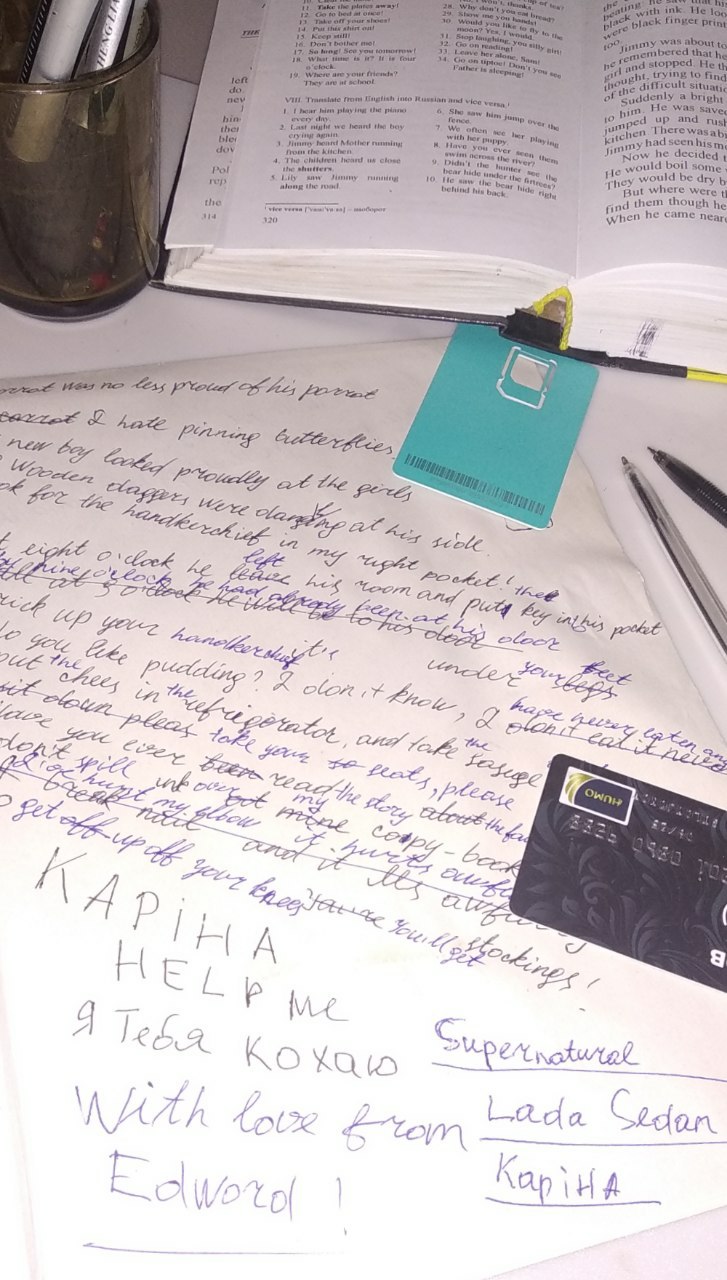 THE
left
do
new
hin
the
blee
dov
Pol
rep
the
314
11. Take the plates away!
12. Go to bed at once!
13. Take off your shoes!
14. Put this shirt on!
15. Keep still!
16. Don't bother me!
17. So long! See you tomorrow!
18. What time is it? It is four
o'clock.
19. Where are your friends?
They are at school.
28. Why don't you eat bread?
29. Show me you hands!
30. Would you like to fly to the
moon? Yes, I would.
31. Stop laughing, you silly girl!
32. Go on reading!
33. Leave her alone, Sam!
34. Go on tiptoe! Don't you see
Father is sleeping!
VIII. Translate from English into Russian and vice versa¹
1. I hear him playing the piano
every day.
2. Last night we heard the boy
crying again.
3. Jimmy heard Mother running
from the kitchen.
4. The children heard us close
the shutters.
5. Lily saw Jimmy running
along the road.
6. She saw him jump over the
fence.
7. We often see her playing
with her puppy.
8. Have you ever seen them
swim across the river?
9. Didn't the hunter see the
bear hide under the firtrees?
10. He saw the bear hide right
behind his back.
¹ vice versa – наоборот
320
black with ink. He
were black finger print
too.
Jimmy was about to
he remembered that he
girl and stopped. He th
thought, trying to find
of the difficult situatio
Suddenly a bright
to him. He was saved
jumped up and rush
kitchen. There was a b
Jimmy had seen his m
Now he decided
He would boil some
They would be dry b
But where were th
find them though he
When he came near
orrot was no less proud of his parrot
carrot I hate pinning butterflies
new boy looked proudly at the girls
Wooden daggers were dangling at his side.
ok for the handkerchief in my right pocket!
t eight o'clock he leave left his room and put the key into his pocket
nine o'clock he had already been at his door
all at 9 o'clock he will be to his door
rick up your handkerchief it's under your feet legs
do you like pudding? I don't know, I have never eaten any
don't eat it never
put the chees in the refrigerator, and take the sasuge
sit down pleas take your so seats, please
Have you ever been read the story about the fa
don't spill ink over my mine copy-book
hurst my elbow it hurts awfu
break and it its awfully
get off up off your knees You'll get stockings!
КАРіНА
HELP ME
Я Тебя КОХАЮ
With love from
Edword!
Supernatural
Lada Sedan
КаріНА
HUMO